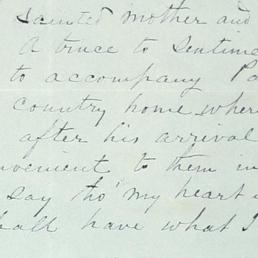 sainted mother and
A truce to sentime
to accompany Pa
country home wher
after his arrival
nvenient to them in
say tho' my heart i
hall have what I